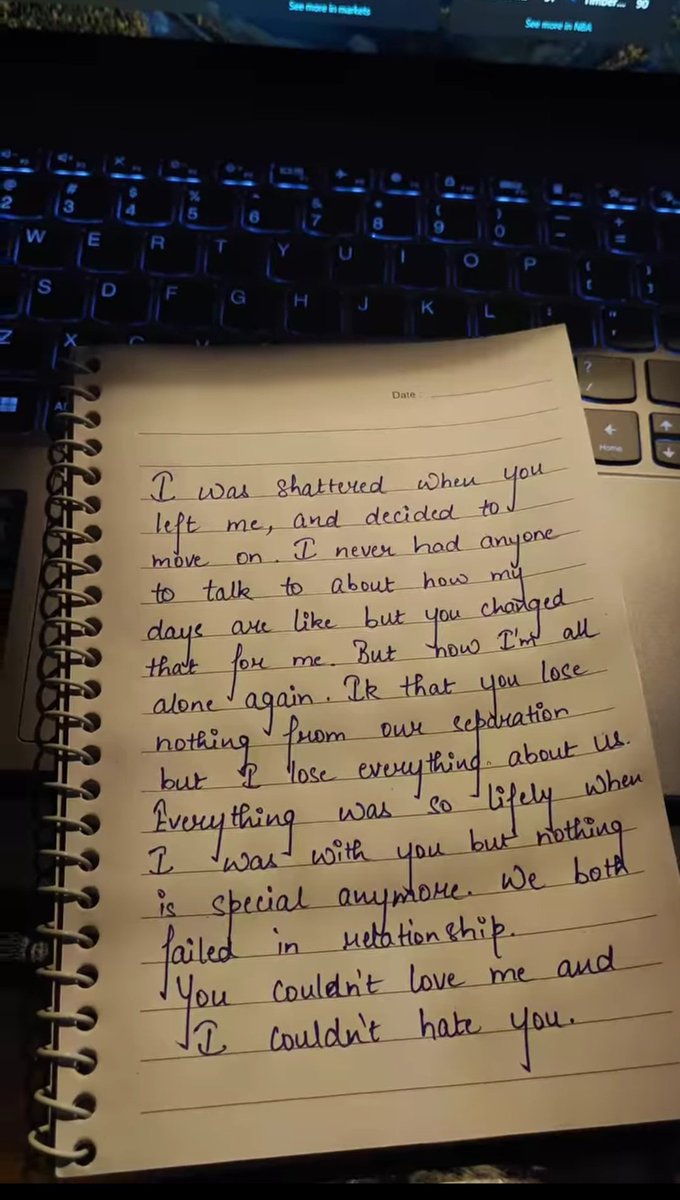 See more in markets
See more in NBA
90
2 3 4 5 6 7 8 9 0
W E R T Y U I O P
S D F G H J K L
Z X
Home
Date :
I was shattered when you
left me, and decided to
move on. I never had anyone
to talk to about how my
days are like but you changed
that for me. But now I'm all
alone again. Ik that you lose
nothing from our separation
but I lose everything. about us.
Everything was so lifely when
I was with you but nothing
is special anymore. We both
failed in relationship.
You couldn't love me and
I couldn't hate you.